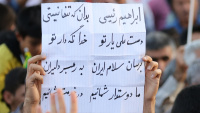 ابراهیم رئیسی بدان که تنها نیستی
دست علی یار تو خدا نگهدار تو
برسان سلام ایران به رهبر دلیران
ما دوستدار شمائیم